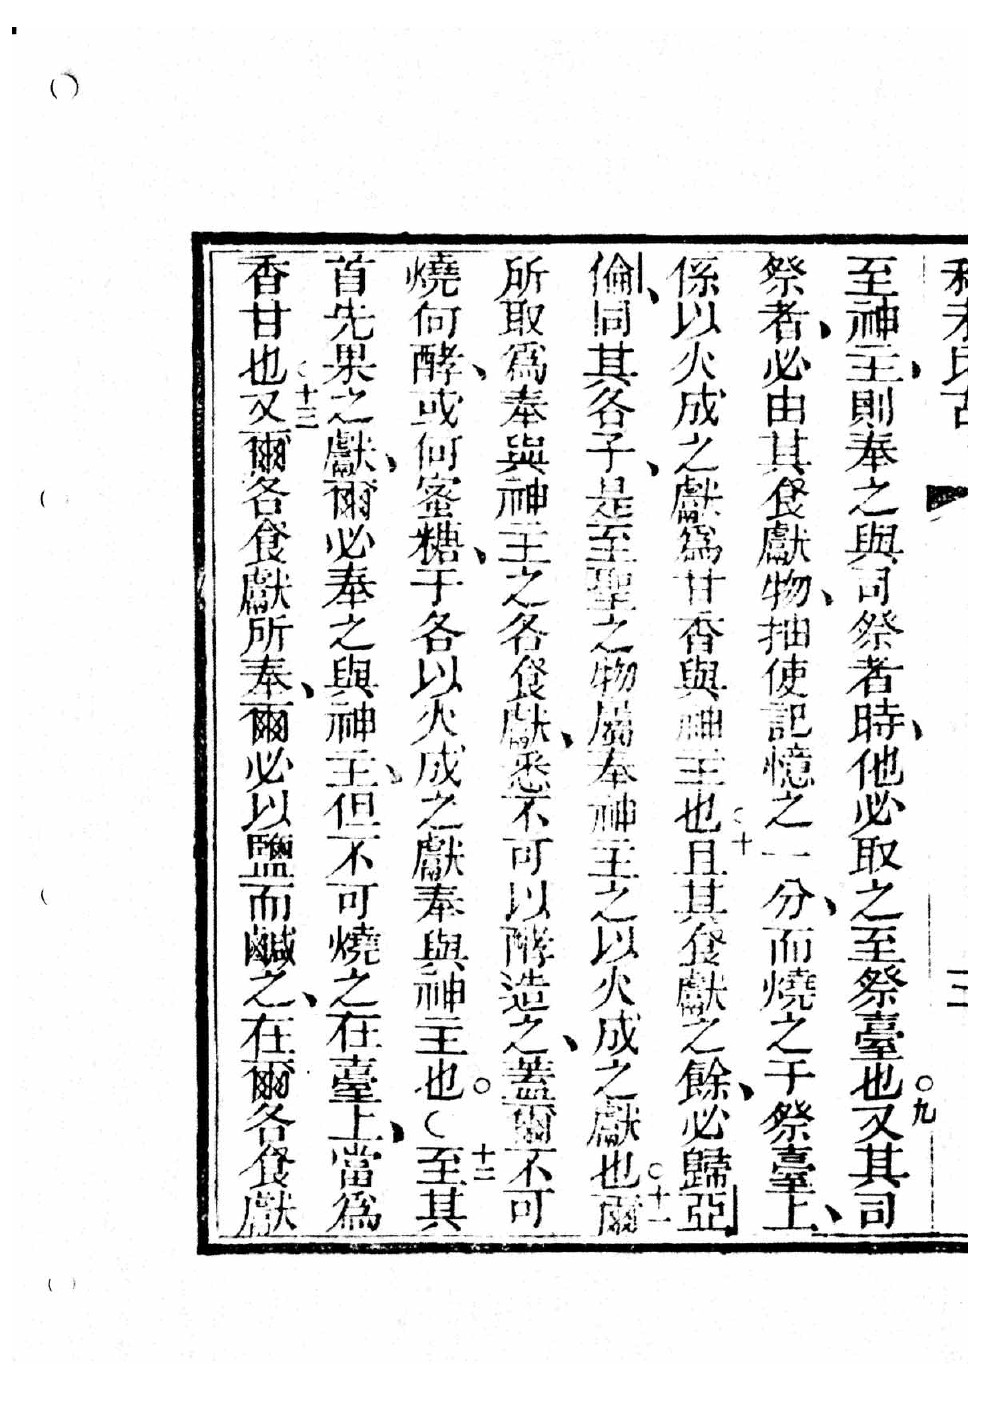 至神主、則奉之與司祭者時、他必取之至祭臺也○九又其司
祭者、必由其食獻物、抽使記憶之一分、而燒之于祭臺上、
係以火成之獻爲甘香與神主也○十且其食獻之餘、必歸亞
倫、同其各子、是至聖之物屬奉神主之以火成之獻也○十一爾
所取爲奉與神主之各食獻、悉不可以酵造之、蓋爾不可
燒何酵、或何蜜糖、于各以火成之獻奉與神主也○十二至其
首先果之獻、爾必奉之與神主、但不可燒之在臺上、當爲
香甘也○十三又爾各食獻所奉、爾必以鹽而鹹之、在爾各食獻